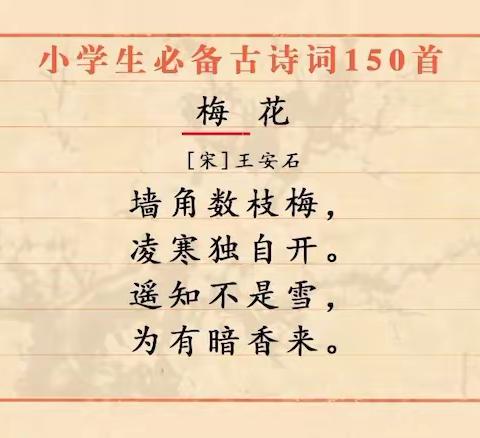 小学生必备古诗词150首
梅花
[宋]王安石
墙角数枝梅，
凌寒独自开。
遥知不是雪，
为有暗香来。